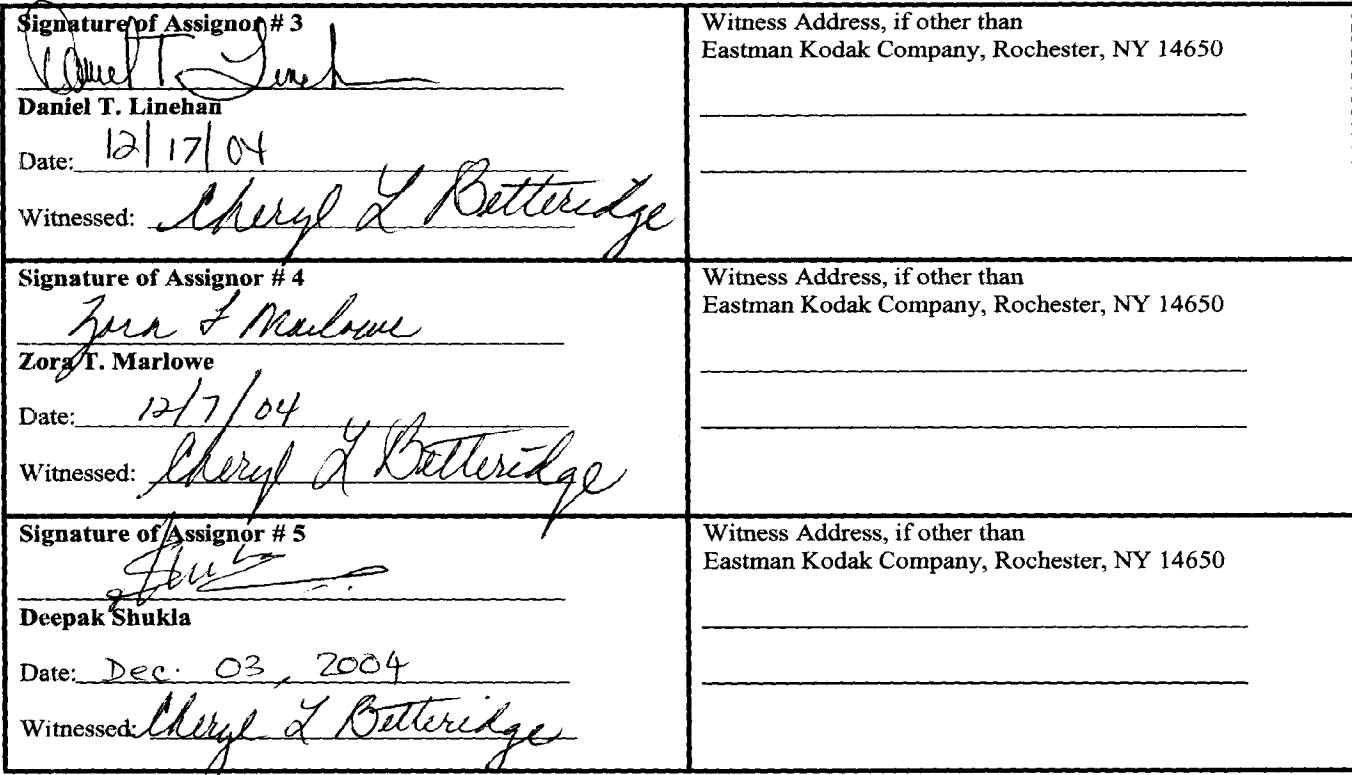 Signature of Assignor # 3
Daniel T. Linehan
Daniel T. Linehan
Date: 12/17/04
Witnessed: Cheryl L Betteridge
Witness Address, if other than
Eastman Kodak Company, Rochester, NY 14650
Signature of Assignor # 4
Zora T Marlowe
Zora T. Marlowe
Date: 12/7/04
Witnessed: Cheryl L Betteridge
Witness Address, if other than
Eastman Kodak Company, Rochester, NY 14650
Signature of Assignor # 5
Deepak Shukla
Date: Dec. 03, 2004
Witnessed: Cheryl L Betteridge
Witness Address, if other than
Eastman Kodak Company, Rochester, NY 14650